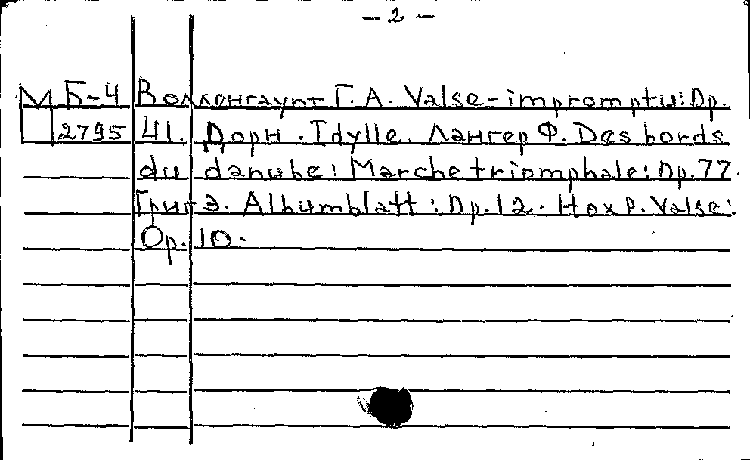 - 2 -
М Б-4 Волленгаупт Г. А. Valse-impromptu: Op.
2795 41. Дорн. Idylle. Лангер Ф. Des bords
du danube: Marche triomphale: Op. 77.
Григ Э. Albumblatt: Op. 12. Нох Р. Valse:
Op. 10.